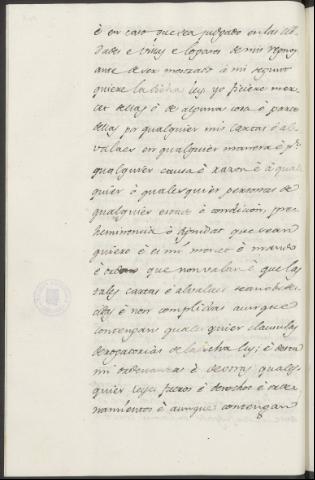 è en caso que sea juzgado en las cib-
dades e villas e logares de mis regnos
ante de ser mostrado à mi segunt
quiere la dicha ley, yo ficiere mer-
ced dellas ò de alguna cosa ò parte
dellas por qualquier mis cartas ò al-
valaes en qualquier manera ò por
qualquier causa ò razon è à qual
quier ò qualesquier personas de
qualquier estado ò condicion, pre-
heminencia ò dignidat que sean
quiero è es mi merced è mando
è ordeno que non valan è que las
tales cartas è alvalaes sean obede-
cidas è non complidas aunque
contengan qualesquier clausulas
derogatorias de la dicha ley; è desta
mi ordenanza è de otras quales-
quier leyes fueros è derechos è orde-
namientos è aunque contengan